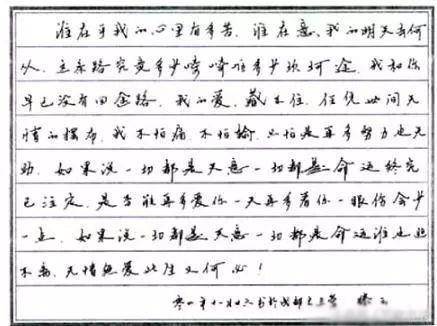 谁在乎我的心里有多苦.谁在意.我的明天去何
从.这条路究竟多少崎多少坎坷途.我和你
早已没有回路.我的爱.藏不住.任凭世间无
情的摆布.我不怕痛.不怕输.只怕是再多努力也无
助.如果说一切都是天意一切都是命运终究
已注定.是否能再多爱你一天再多看你一眼伤会少
一点.如果说一切都是天意一切都是命运谁也逃
不离.无情无爱此生又何必!
书于成都